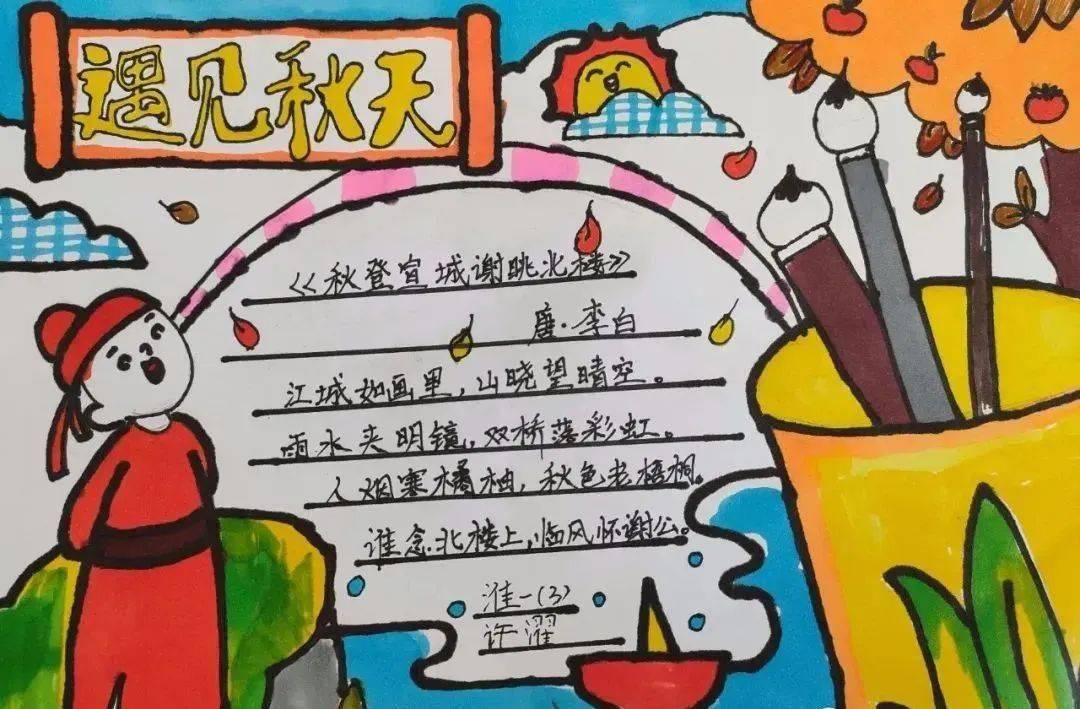 遇见秋天
《秋登宣城谢眺北楼》
唐·李白
江城如画里，山晓望晴空。
雨水夹明镜，双桥落彩虹。
人烟寒橘柚，秋色老梧桐。
谁念北楼上，临风怀谢公。
淮一(3)
许濯